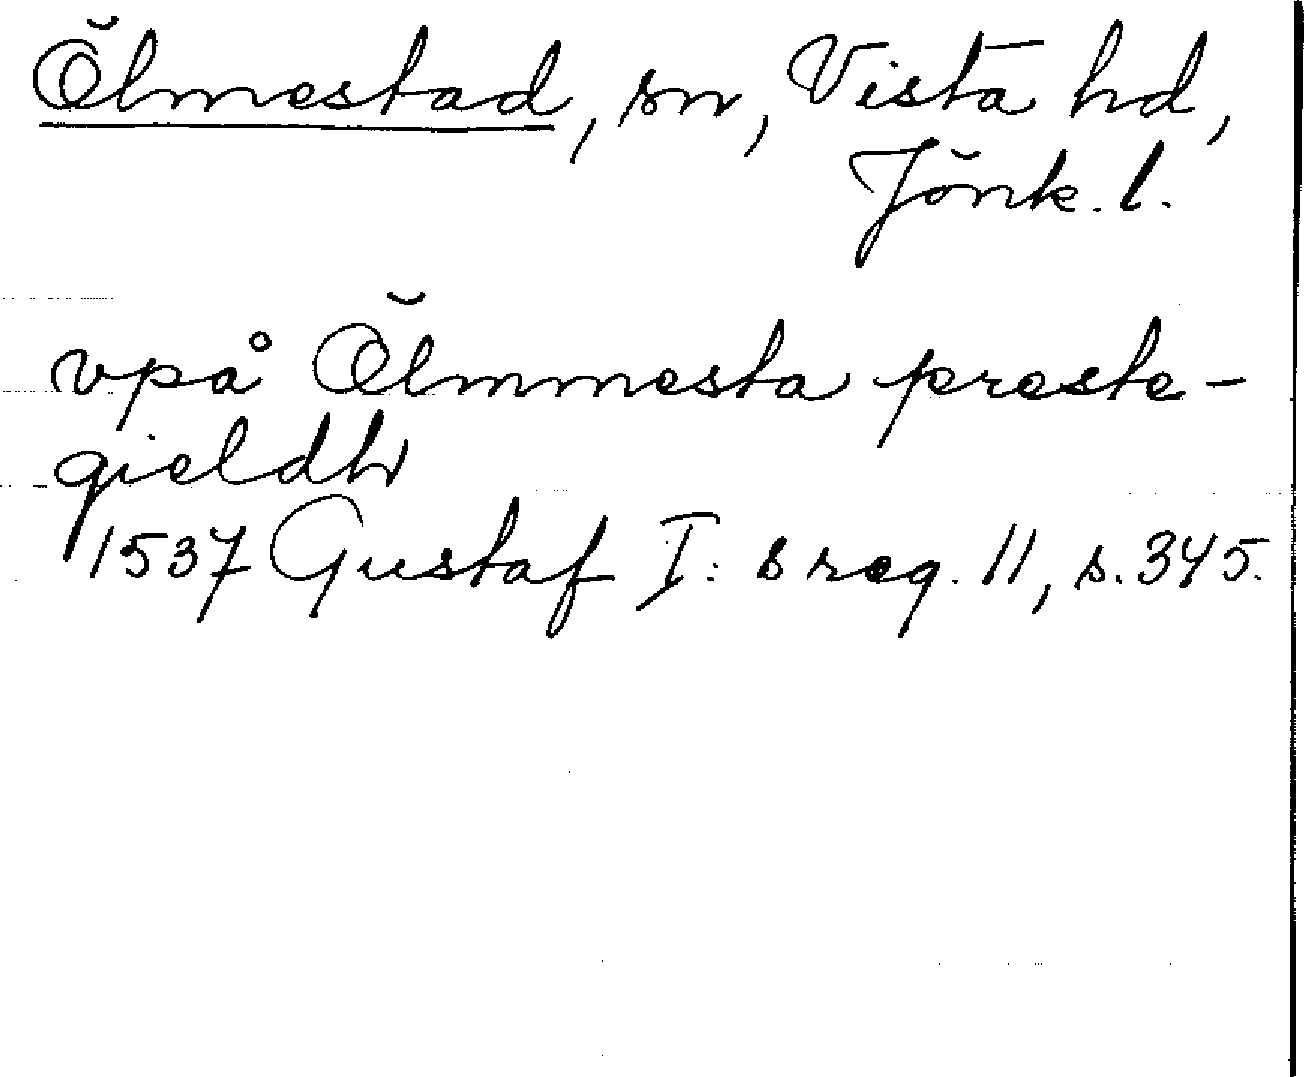 Ölmestad, sn, Vista hd,
Jönk. l.
vpå Ölmmesta preste-
gieldh
1537 Gustaf I: s reg. 11, s. 345.